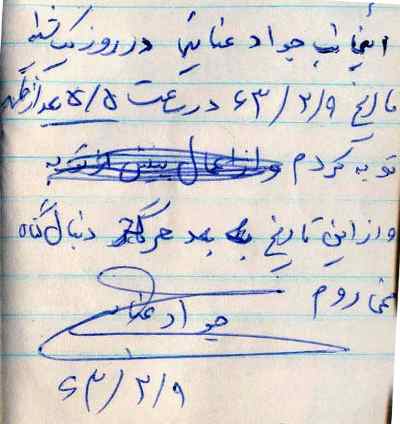 اینجانب جواد عنایتی در روز یکشنبه
تاریخ ۶۳/۲/۹ در ساعت ۵/۵ بعد از ظهر
توبه کردم و از اعمال پیش از توبه
و از این تاریخ به بعد هرگز دنبال گناه
نمی روم
جواد عنایتی
۶۳/۲/۹